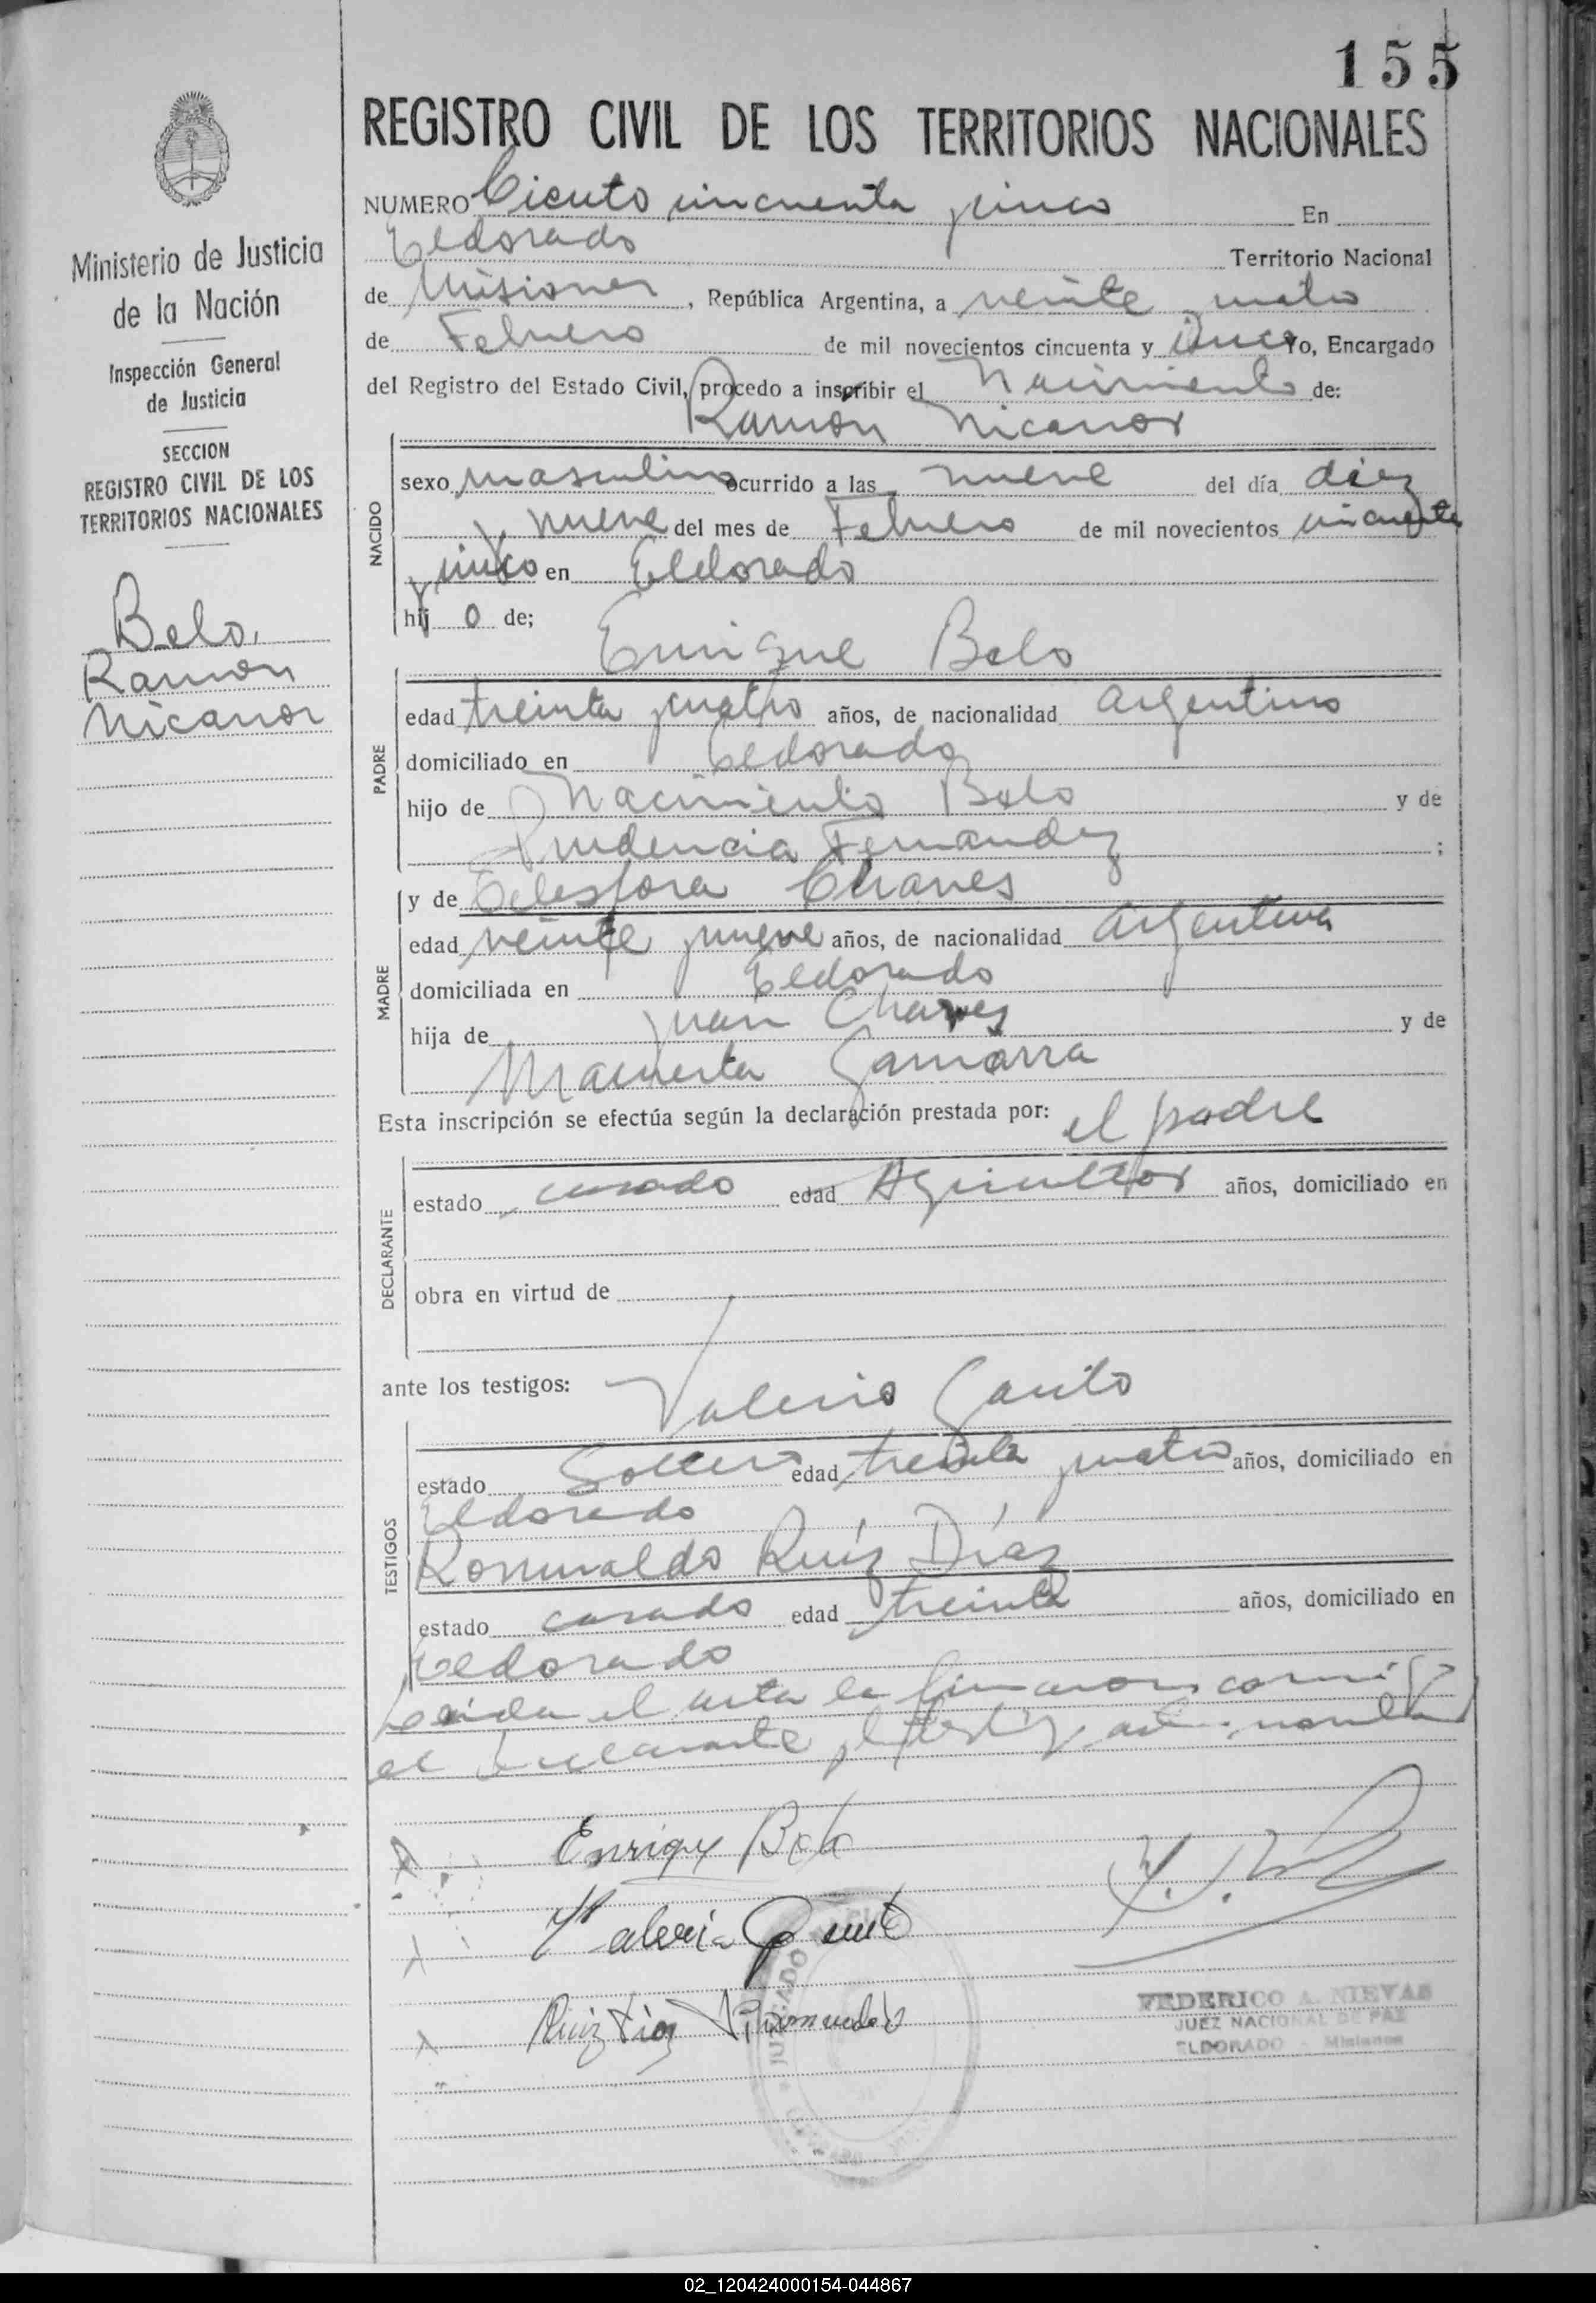 155
REGISTRO CIVIL DE LOS TERRITORIOS NACIONALES
NUMERO Ciento cincuenta y cinco En
Eldorado Territorio Nacional
de Misiones, República Argentina, a veinte y cuatro
de Febrero de mil novecientos cincuenta y cinco Yo, Encargado
del Registro del Estado Civil, procedo a inscribir el Nacimiento de:
Ramón Nicanor
NACIDO
sexo masculino ocurrido a las nueve del día diez
y nueve del mes de Febrero de mil novecientos cincuenta
y cinco en Eldorado
hij o de;
Enrique Belo
PADRE
edad treinta y cuatro años, de nacionalidad Argentino
domiciliado en Eldorado
hijo de Nacimiento Belo y de
Prudencia Fernandez ;
MADRE
y de Telesfora Chaves
edad veinte y nueve años, de nacionalidad Argentina
domiciliada en Eldorado
hija de Juan Chaves y de
Macuerta Gamarra
Esta inscripción se efectúa según la declaración prestada por: el padre
DECLARANTE
estado casado edad Agricultor años, domiciliado en
obra en virtud de
ante los testigos: Valerio
TESTIGOS
estado Soltero edad treinta y cuatro años, domiciliado en
Eldorado
Romualdo Ruíz Díaz
estado casado edad treinta años, domiciliado en
Eldorado
Leida el acta la firmaron conmigo
el declarante y testigos
Enrique Belo
Valerio
Ruiz Diaz Romualdo
FEDERICO A. NIEVAS
JUEZ NACIONAL DE PAZ
ELDORADO - Misiones
JUZGADO
Ministerio de Justicia
de la Nación
Inspección General
de Justicia
SECCION
REGISTRO CIVIL DE LOS
TERRITORIOS NACIONALES
Belo,
Ramon
Nicanor
02_120424000154-044867